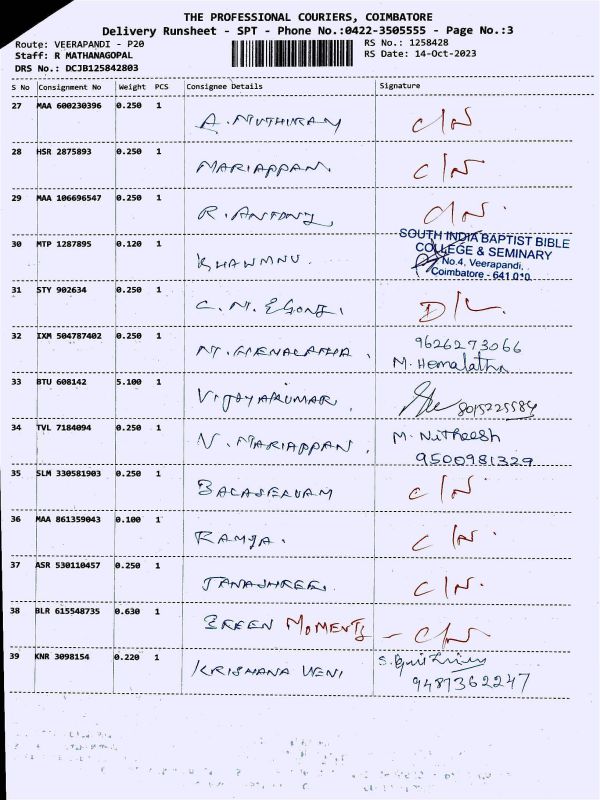 THE PROFESSIONAL COURIERS, COIMBATORE
Delivery Runsheet - SPT - Phone No.:0422-3505555 - Page No.:3
Route: VEERAPANDI - P20
RS No.: 1258428
Staff: R MATHANAGOPAL
RS Date: 14-Oct-2023
DRS No.: DCJB125842803
S No Consignment No Weight PCS Consignee Details Signature
27 MAA 600230396 0.250 1 A. MUTHURAM C/N
28 HSR 2875893 0.250 1 MARIAPPAN. C/N
29 MAA 106696547 0.250 1 R. ANTONY, C/N.
SOUTH INDIA BAPTIST BIBLE
COLLEGE & SEMINARY
30 MTP 1287895 0.120 1 No.4, Veerapandi,
Coimbatore - 641 019.
31 STY 902634 0.250 1 D/L.
32 IXM 504787402 0.250 1 9626273066
M. Hemalatha
33 BTU 608142 5.100 1 VIJOYAKUMAR, 8015225584
34 TVL 7184094 0.250 1 N. MARIAPPAN. M. Nitheesh
9500981329
35 SLM 330581903 0.250 1 BALASELVAM C/N.
36 MAA 861359043 0.100 1 RAMYA. C/N.
37 ASR 530110457 0.250 1 JANASHREE. C/N.
38 BLR 615548735 0.630 1 GREEN MOMENTS - C/N
39 KNR 3098154 0.220 1 KRISHANA VENI
9487362247